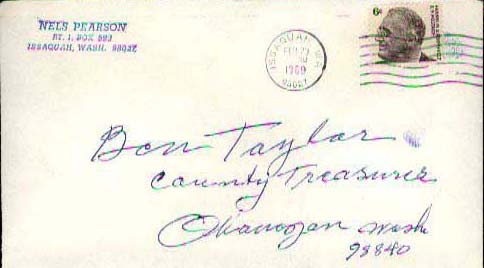 NELS PEARSON
RT. 1, BOX 593
ISSAQUAH, WASH. 98027
ISSAQUAH, WA
FEB 22
1969
98027
6¢
Ben Taylor
County Treasurer
Okanogan Wash
98840